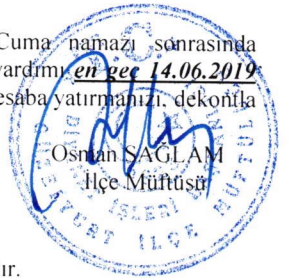 Cuma namazı sonrasında
yardımı en geç 14.06.2019
esaba yatırmanızı, dekontla
Osman SAĞLAM
İlçe Müftüsü
ır.